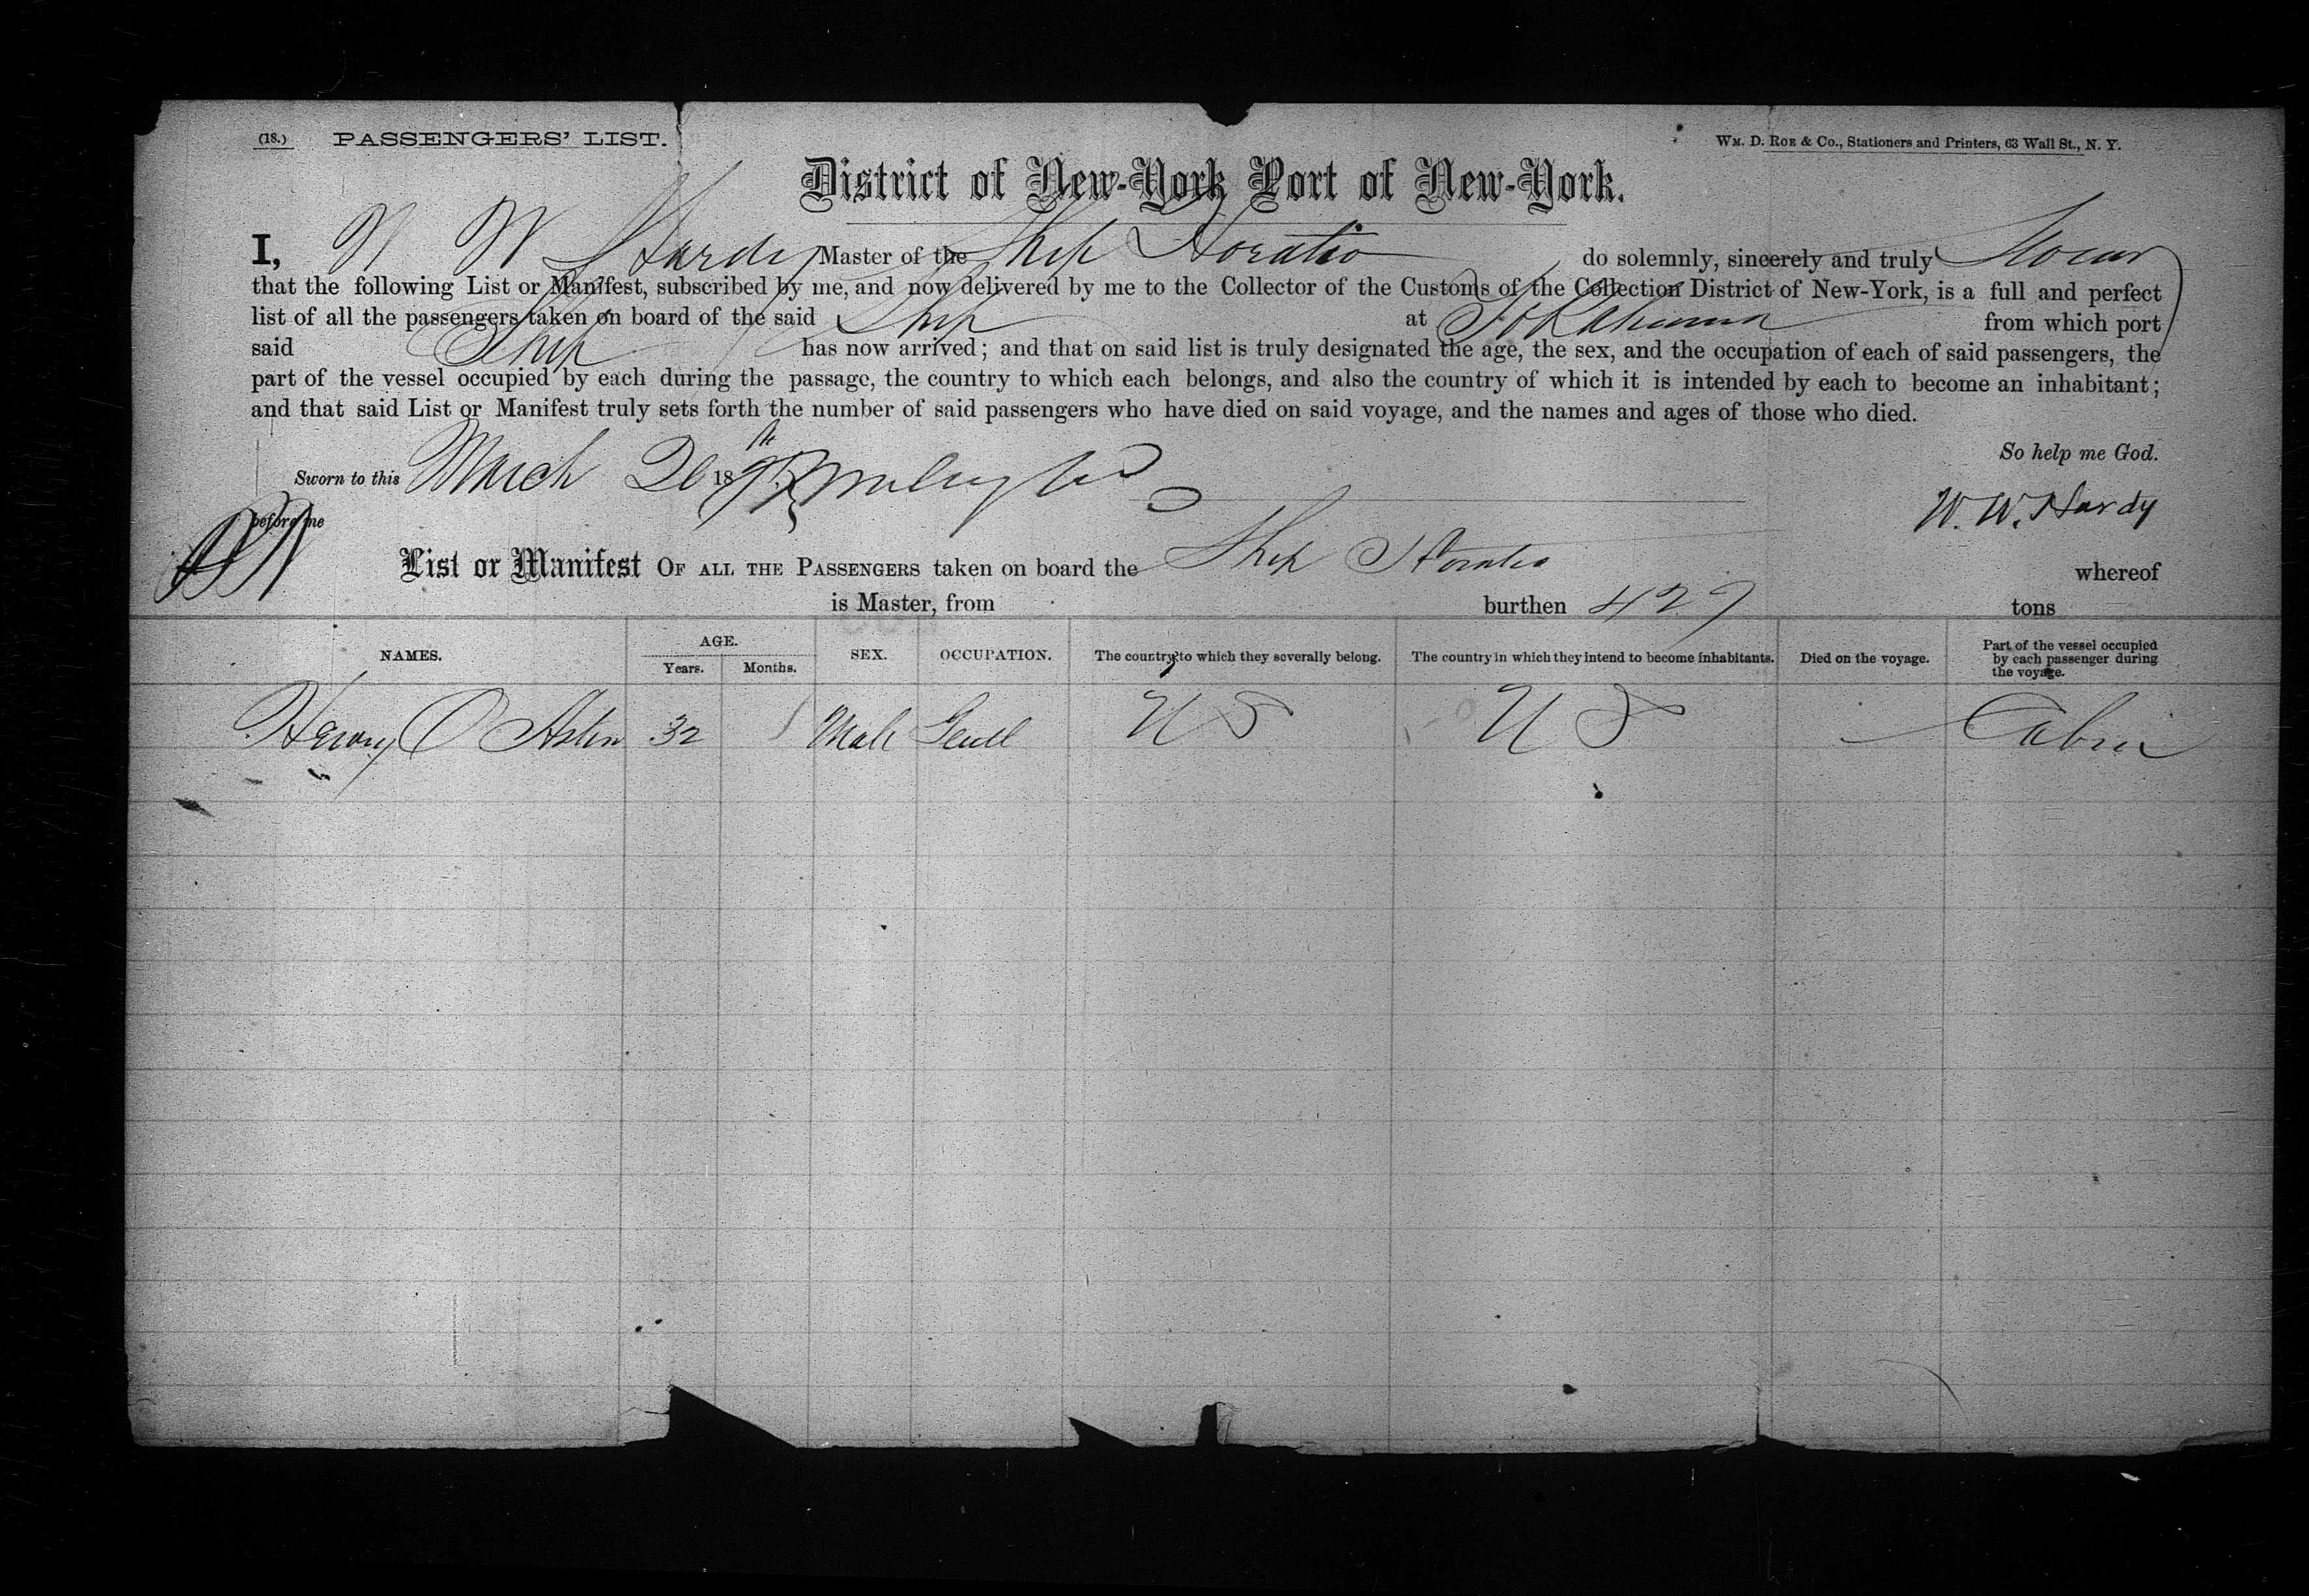 (18.) PASSENGERS' LIST.
WM. D. ROE & CO., Stationers and Printers, 63 Wall St., N. Y.
District of New-York Port of New-York.
I, W W Hardy Master of the Ship Horatio do solemnly, sincerely and truly Swear
that the following List or Manifest, subscribed by me, and now delivered by me to the Collector of the Customs of the Collection District of New-York, is a full and perfect
list of all the passengers taken on board of the said Ship at Yokohama from which port
said Ship has now arrived; and that on said list is truly designated the age, the sex, and the occupation of each of said passengers, the
part of the vessel occupied by each during the passage, the country to which each belongs, and also the country of which it is intended by each to become an inhabitant;
and that said List or Manifest truly sets forth the number of said passengers who have died on said voyage, and the names and ages of those who died.
So help me God.
Sworn to this March 18
W. W. Hardy
before me
List or Manifest OF ALL THE PASSENGERS taken on board the Ship Horatio whereof
is Master, from burthen 429 tons
NAMES. AGE. Years. Months. SEX. OCCUPATION. The country to which they severally belong. The country in which they intend to become inhabitants. Died on the voyage. Part of the vessel occupied by each passenger during the voyage.
Henry O 32 Male Gentl U S U S Cabin